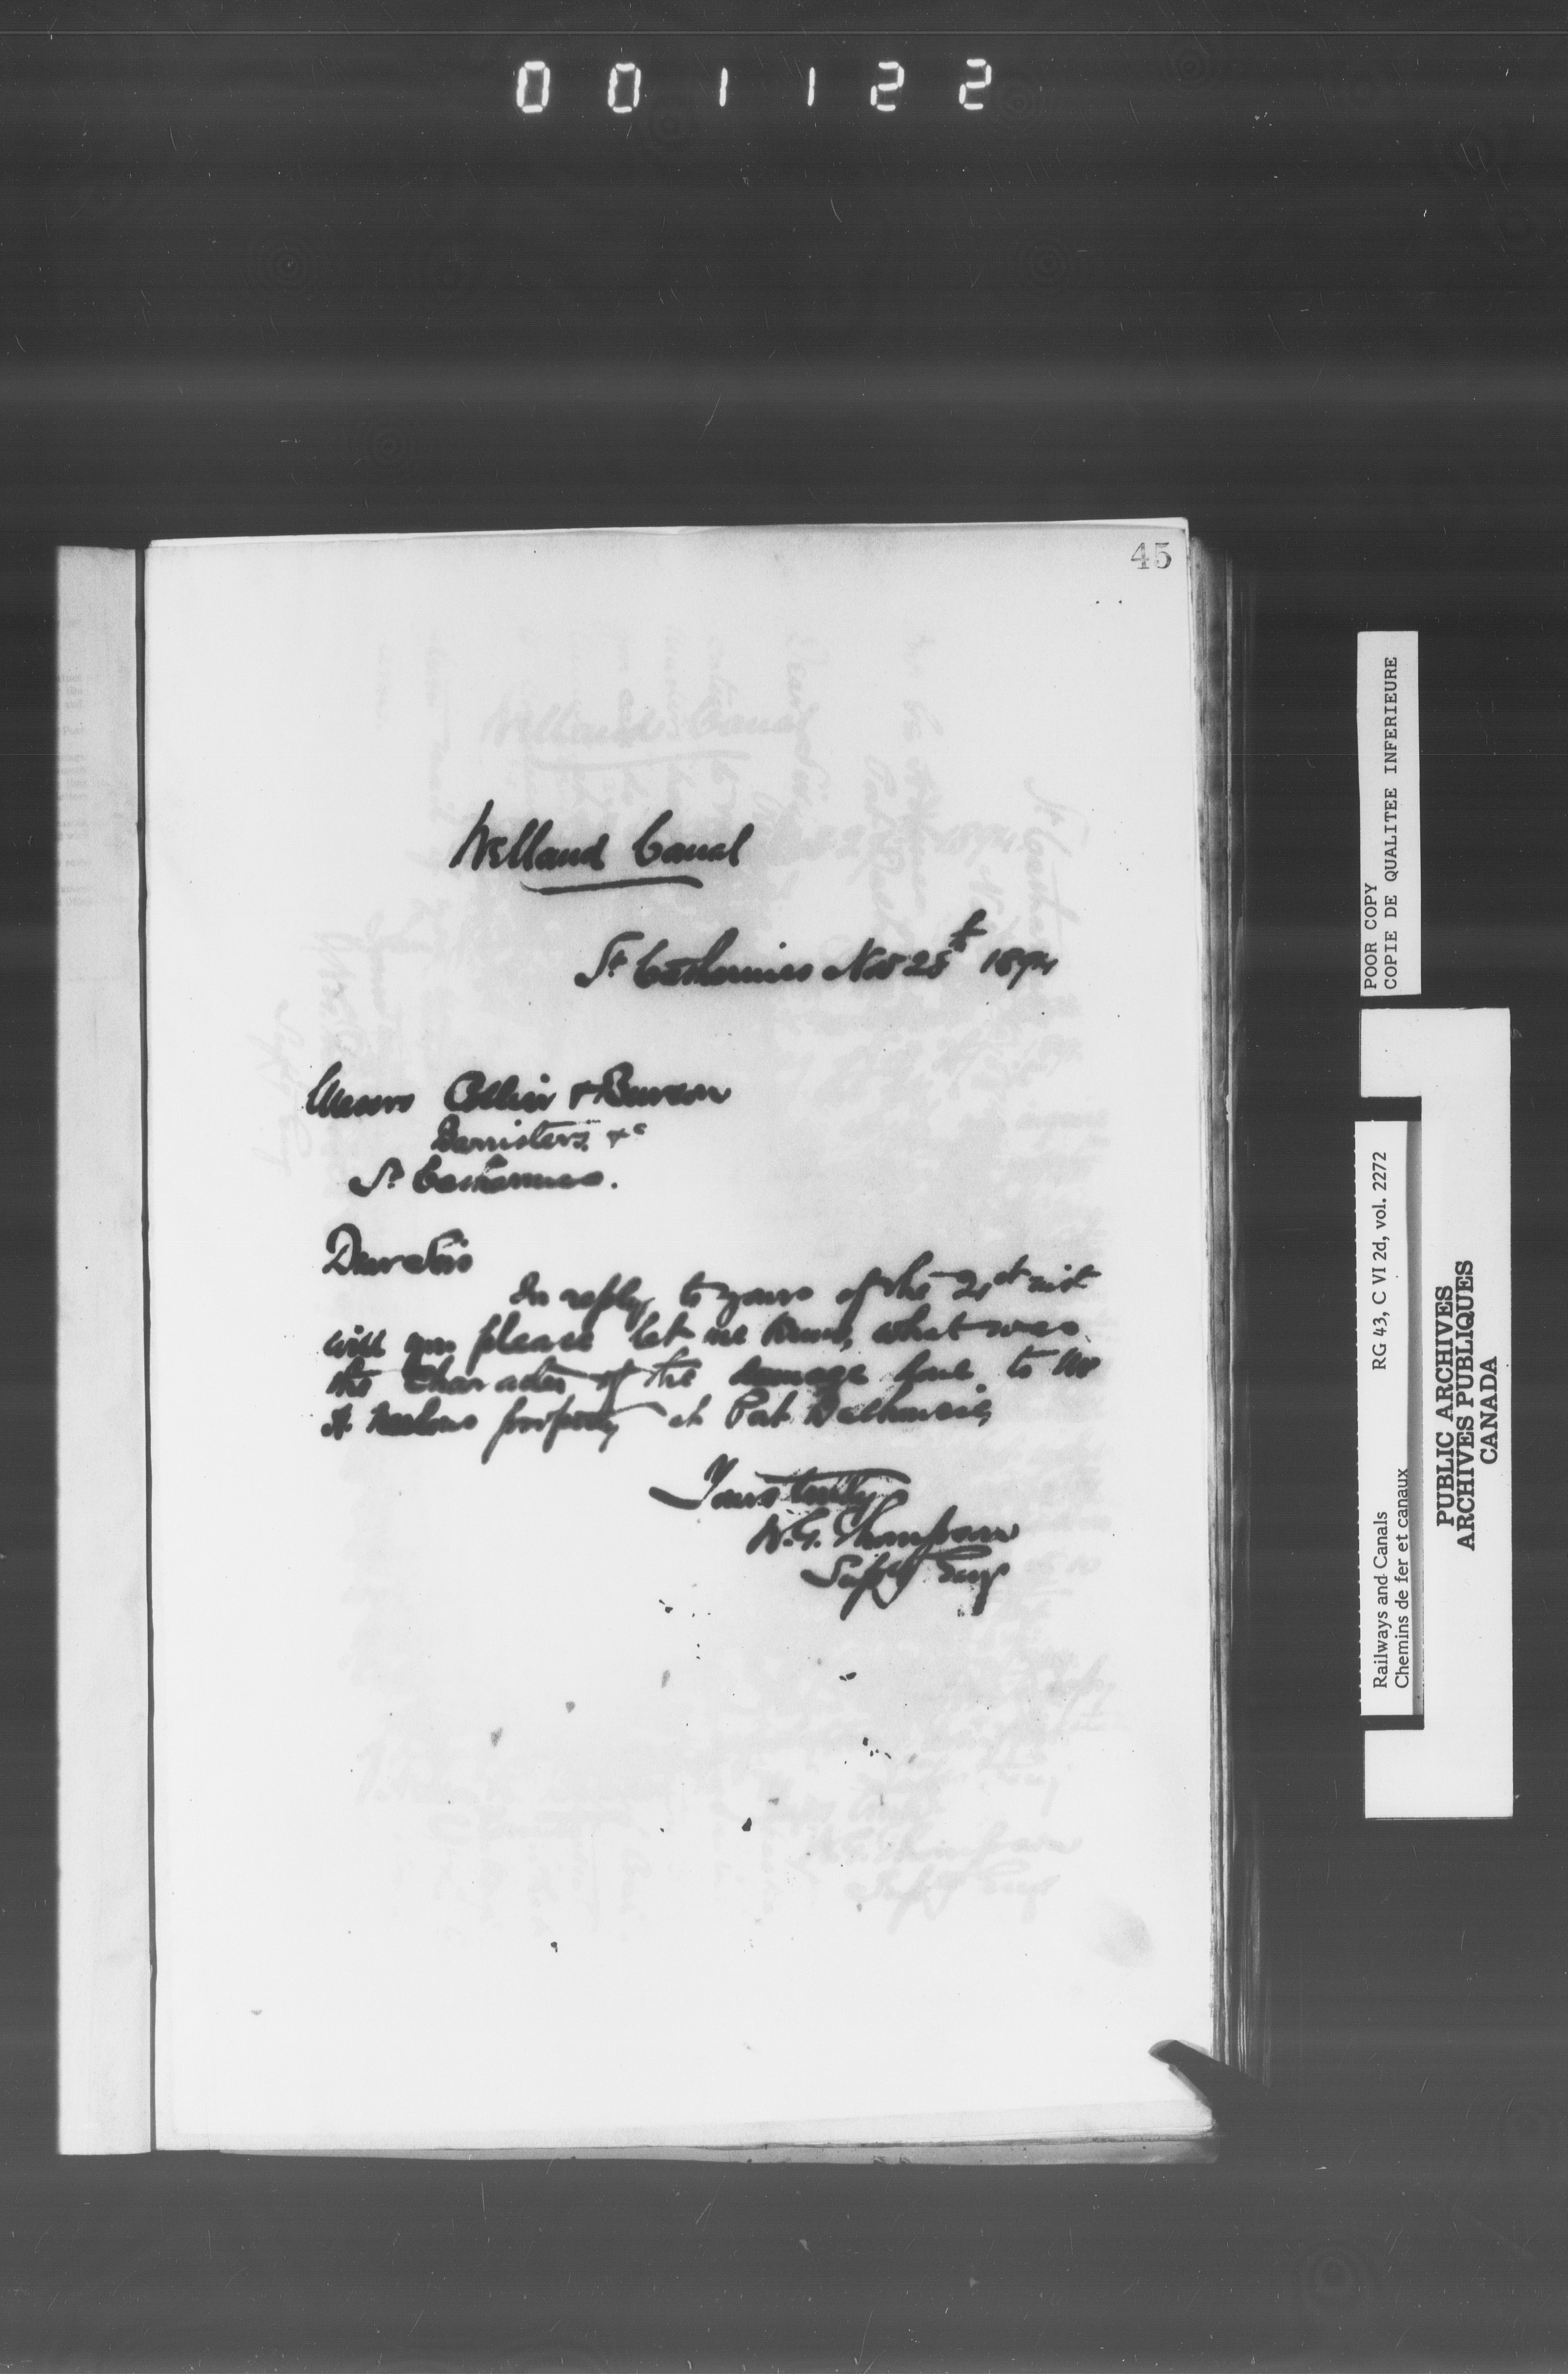 001122
45
Welland Canal
St Catharines Nov 28th 1894
Messrs Collier & Burson
Barristers &c
St Catharines.
Dear Sirs
In reply to yours of the 21st inst
will you please let me know, what was
the Character of the damage done to Mr
A. property at Port Dalhousie,
Yours truly
W.G. Thompson
Suptg Eng
POOR COPY
COPIE DE QUALITEE INFERIEURE
Railways and Canals RG 43, C VI 2d, vol. 2272
Chemins de fer et canaux
PUBLIC ARCHIVES
ARCHIVES PUBLIQUES
CANADA